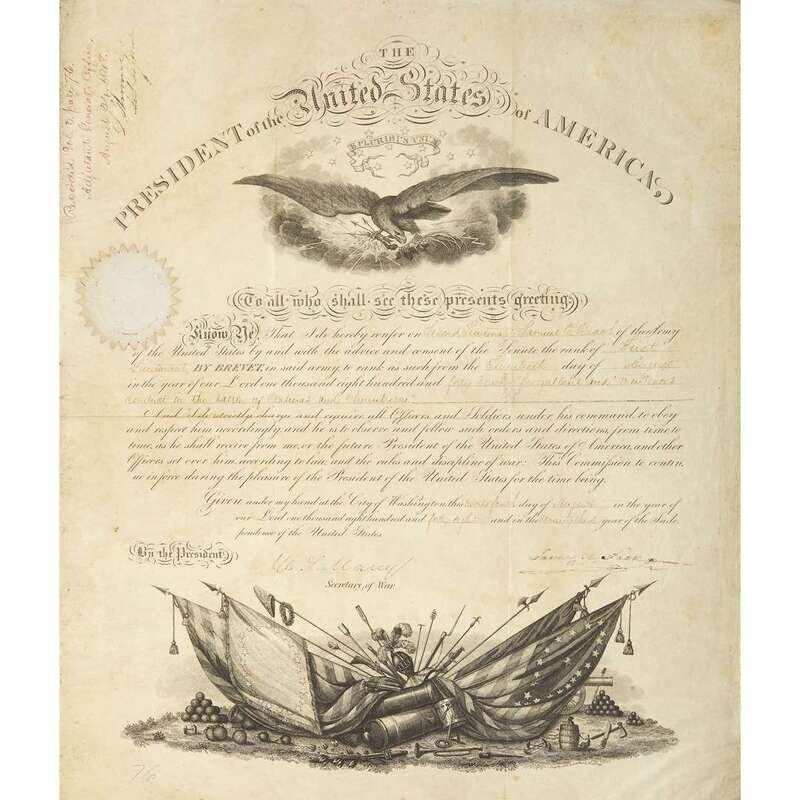 Recorded Vol. 3, page 76.
Adjutant General's Office.
August 1848.
THE
PRESIDENT of the United States of AMERICA,
E PLURIBUS UNUM
To all who shall see these presents greeting:
Know Ye, That I do hereby confer on Second Lieutenant Samuel of the Army
of the United States by and with the advice and consent of the Senate the rank of First
Lieutenant BY BREVET, in said army to rank as such from the Twentieth day of August
in the year of our Lord one thousand eight hundred and forty seven for gallant and meritorious
conduct in the battles of Contreras and Churubusco:
And I do strictly charge and require all Officers and Soldiers under his command, to obey
and respect him accordingly; and he is to observe and follow such orders and directions, from time to
time, as he shall receive from me, or the future President of the United States of America, and other
Officers set over him, according to law, and the rules and discipline of war: This Commission to contin-
ue in force during the pleasure of the President of the United States for the time being.
Given under my hand at the City of Washington, this day of August in the year of
our Lord one thousand eight hundred and forty eight and in the Seventy third year of the Inde-
pendence of the United States.
By the President,
James K. Polk
W. L. Marcy
Secretary, of War.
76